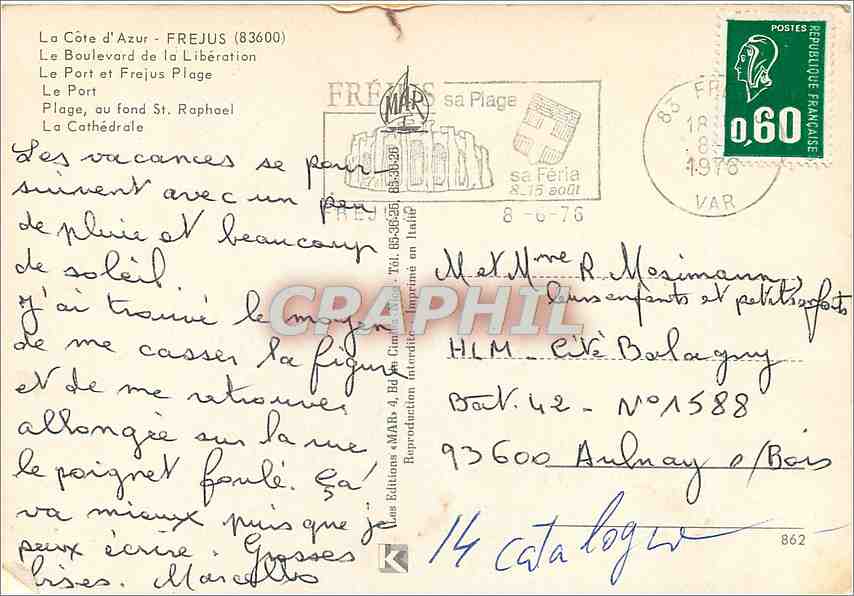 La Côte d'Azur - FREJUS (83600)
Le Boulevard de la Libération
Le Port et Frejus Plage
Le Port
Plage, au fond St. Raphael
La Cathédrale
Les vacances se pour-
suivent avec un peu
de pluie et beaucoup
de soleil
J'ai trouvé le moyen
de me casser la figure
et de me retrouver
allongée sur la rue
le poignet foulé. Ça
va mieux puisque je
peux écrire. Grosses
bises.
FRÉJUS sa Plage
sa Féria
8-15 août
FREJUS
8-6-76
MAR
Les Editions «MAR» 4, Bd du - Nice - Tél. 85-38-25, 85-38-26
Reproduction Interdite Imprimé en Italie
83 FR
18
8
1976
VAR
POSTES
RÉPUBLIQUE FRANÇAISE
0,60
M et Mme R Mosimann,
leurs enfants et petits enfants
HLM - Cité Balagny
Bat. 42 - N° 1588
93600 Aulnay s/Bois
14 cataloguer
862
K
CPARPHIL